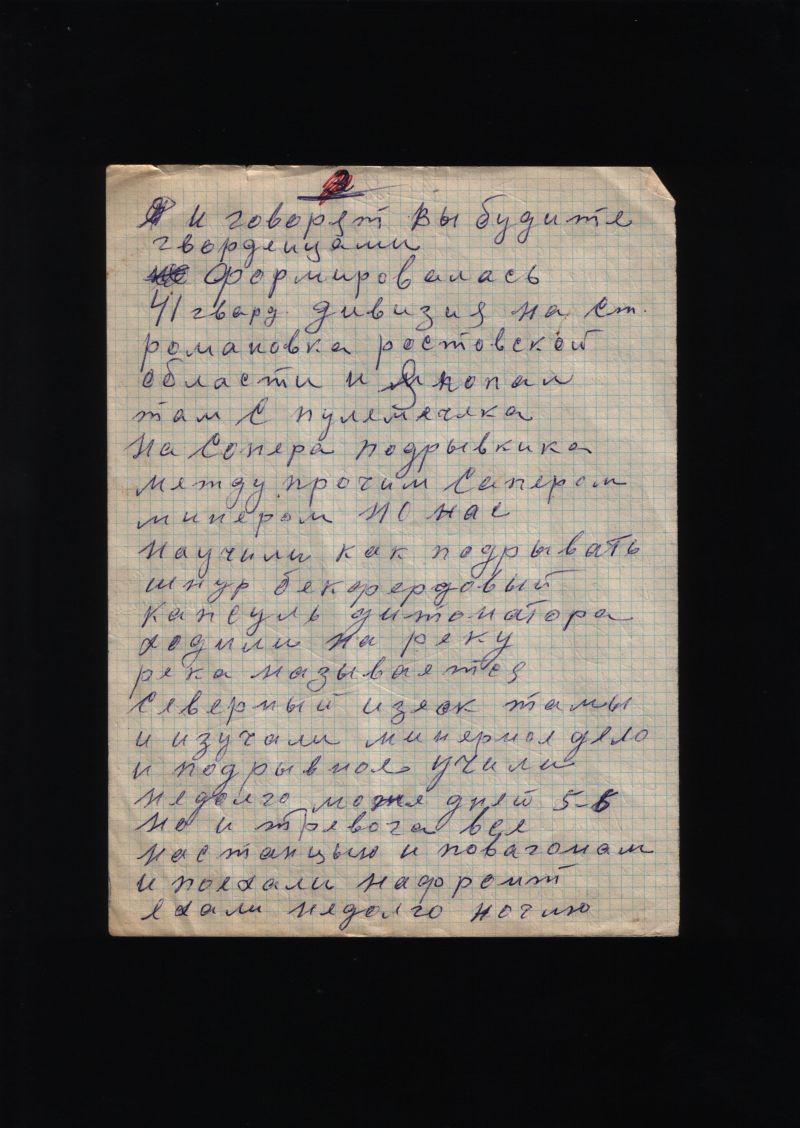 2
И говорят вы будите
гвордейцами
Формировалась
41 гвард. дивизия на ст.
романовка ростовской
области и я попал
там с пулеметчека
на Сопера подрывкика
между прочим Сапером
минером но нас
научили как подрывать
шнур бекфердовый
капсуль дитонатора
ходили на реку
река называется
Северный изеск тамы
и изучали минерное дело
и подрывное учили
недолго може дней 5-6
но и тревога все
на станцыю и повагонам
и поехали нафронт
ехали недолго ночию